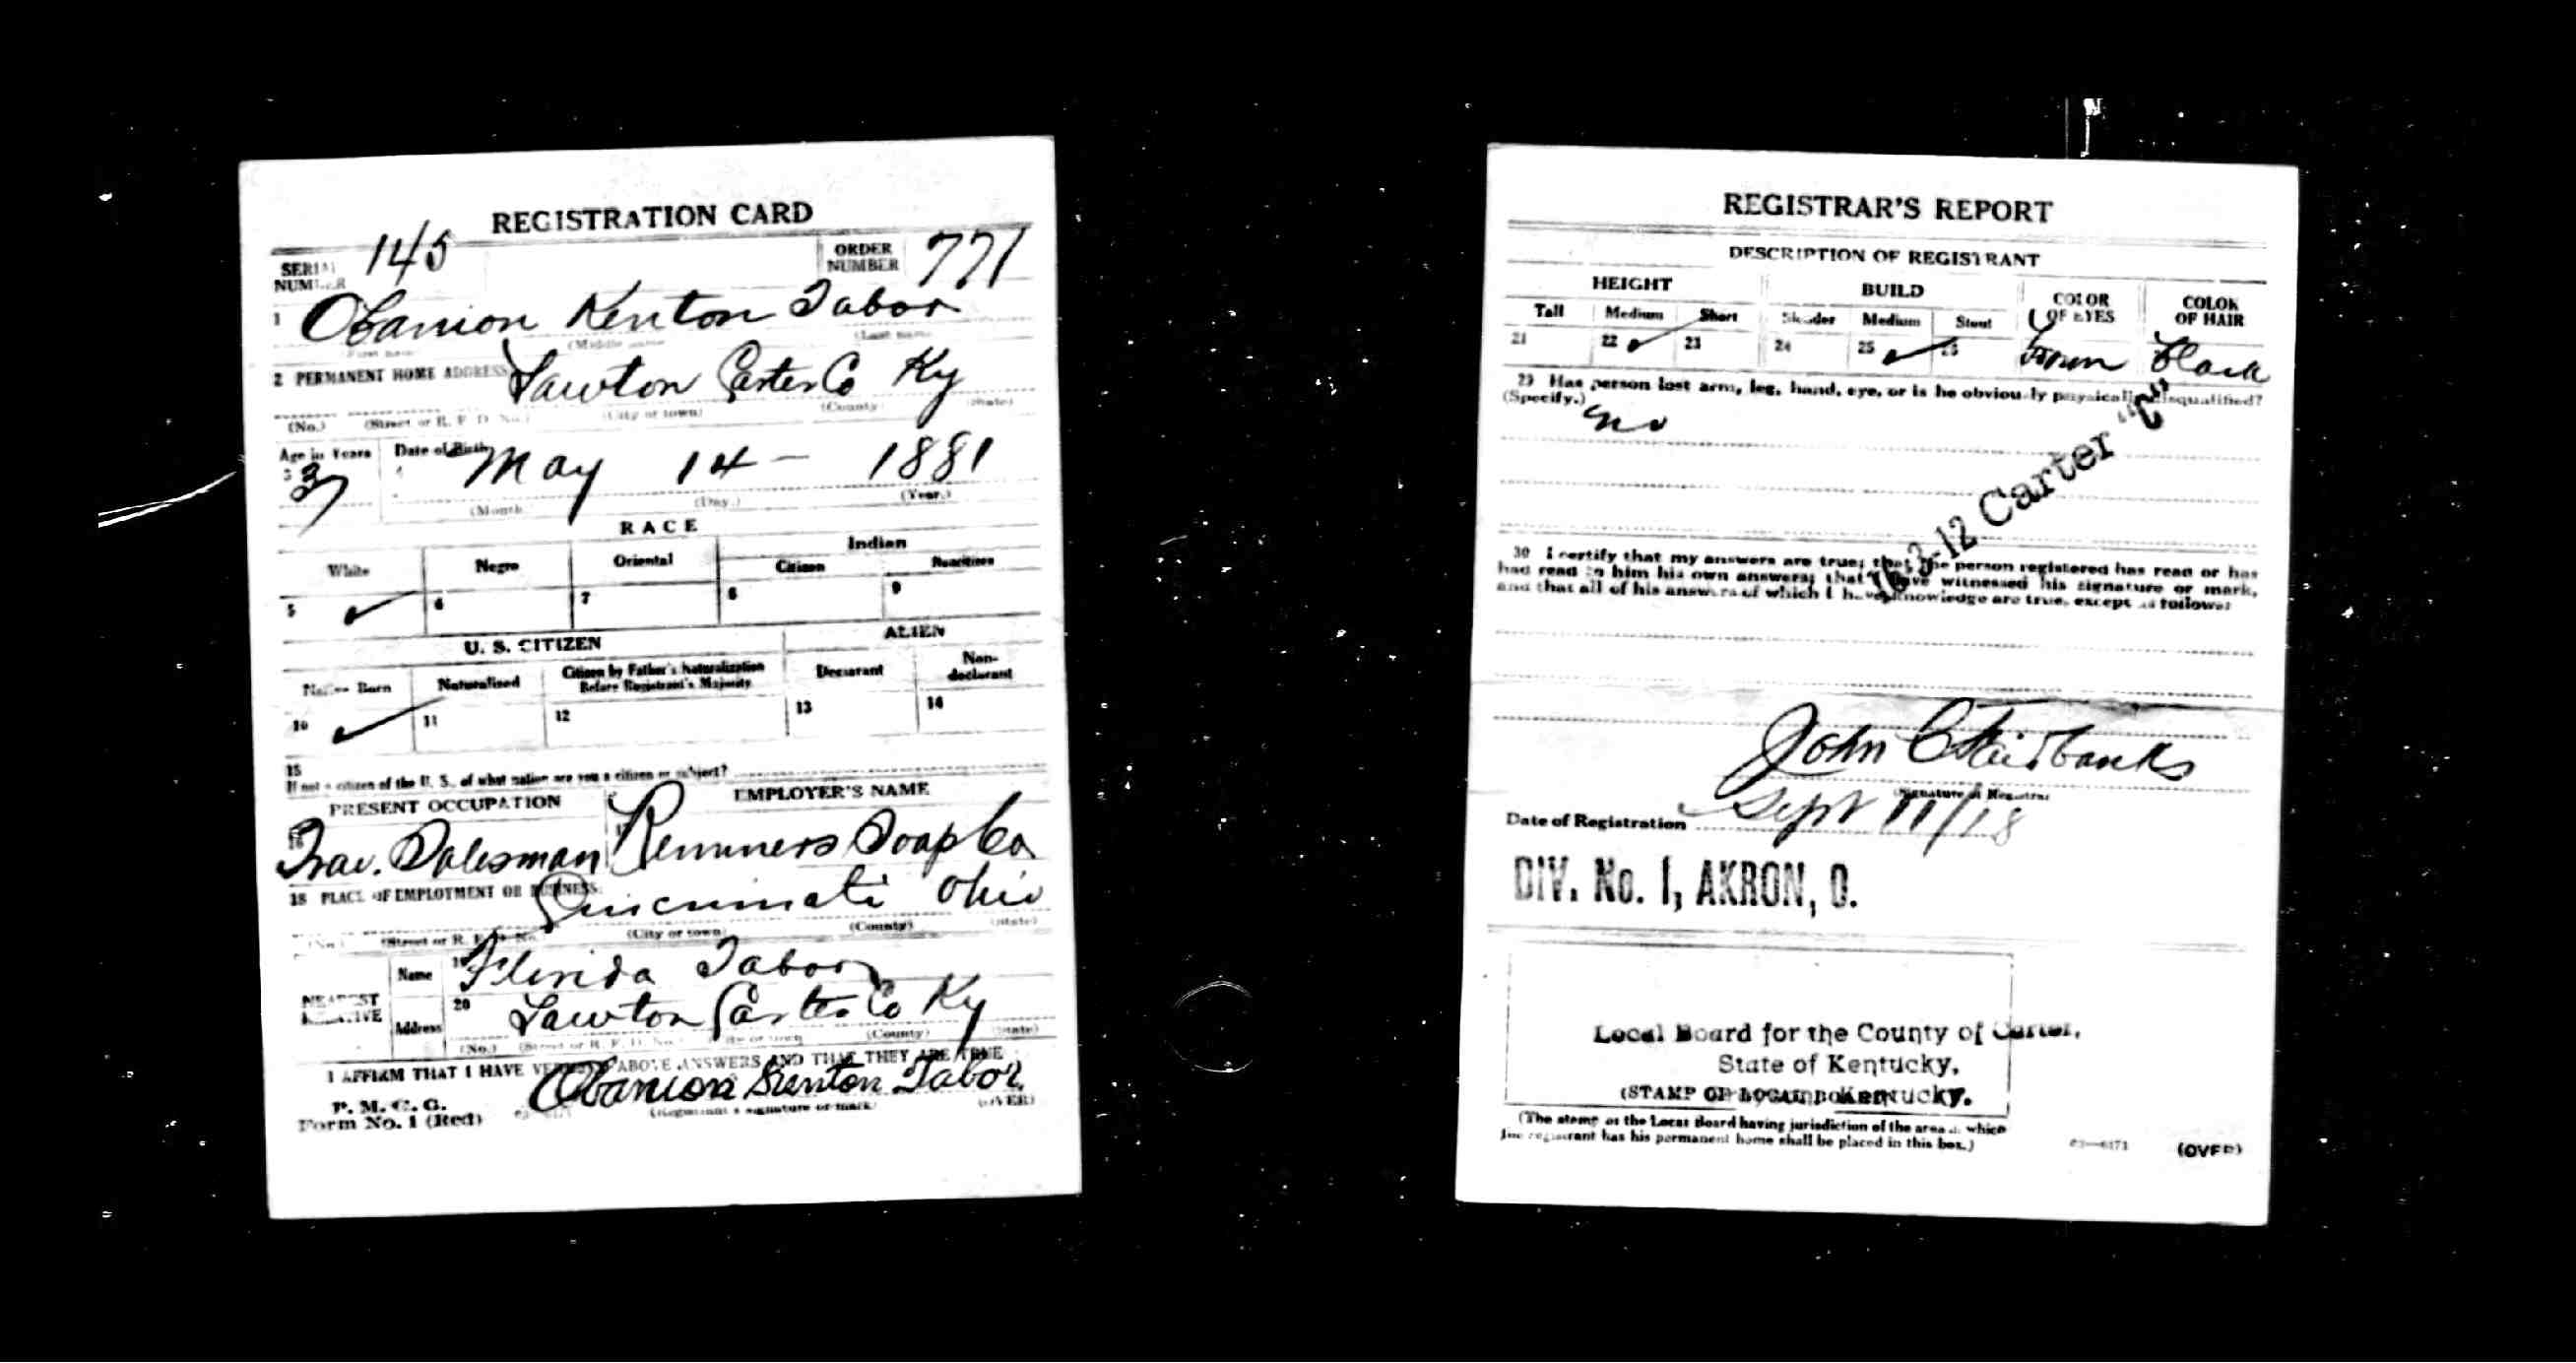 REGISTRATION CARD
SERIAL NUMBER 145 ORDER NUMBER 771
1 Obanion Kenton Tabor
(Middle name (Last name)
2 PERMANENT HOME ADDRESS Lawton Carter Co Ky
(No.) (Street or R. F. D. No.) (City or town) (County) (State)
Age in Years Date of Birth
3 37 4 May 14 - 1881
(Month (Day.) (Year.)
RACE
White Negro Oriental Indian
Citizen Noncitizen
5 ✓ 6 7 8 9
U. S. CITIZEN ALIEN
Native Born Naturalized Citizen by Father's Naturalization Before Registrant's Majority Declarant Non-declarant
10 ✓ 11 12 13 14
15
If not a citizen of the U. S., of what nation are you a citizen or subject?
PRESENT OCCUPATION EMPLOYER'S NAME
16 Trav. Salesman Remmers Soap Co
18 PLACE OF EMPLOYMENT OR BUSINESS Cincinnati Ohio
(No.) (Street or R. F. D. No. (City or town) (County) (State)
NEAREST RELATIVE
Name 19 Florida Tabor
Address 20 Lawton Carter Co Ky
(No.) (Street or R. F. D. No.) (City or town (County) (State)
I AFFIRM THAT I HAVE VERIFIED ABOVE ANSWERS AND THAT THEY ARE TRUE
P. M. G. O. Obanion Kenton Tabor
Form No. 1 (Red) (Registrant's signature or mark) (OVER)
REGISTRAR'S REPORT
DESCRIPTION OF REGISTRANT
HEIGHT BUILD COLOR OF EYES COLOR OF HAIR
Tall Medium Short Slender Medium Stout
21 22 ✓ 23 24 25 ✓ 26 Brown Black
29 Has person lost arm, leg, hand, eye, or is he obviously physically disqualified?
(Specify.) no
16-3-12 Carter "C"
30 I certify that my answers are true; that the person registered has read or has
had read to him his own answers; that I have witnessed his signature or mark,
and that all of his answers of which I have knowledge are true, except as follows:
John C Fairbanks
(Signature of Registrar
Date of Registration Sept 11/18
DIV. No. 1, AKRON, O.
Local Board for the County of Carter,
State of Kentucky,
(STAMP OF LOCAL BOARD) Kentucky.
(The stamp of the Local Board having jurisdiction of the area in which
the registrant has his permanent home shall be placed in this box.)
03—6171 (OVER)